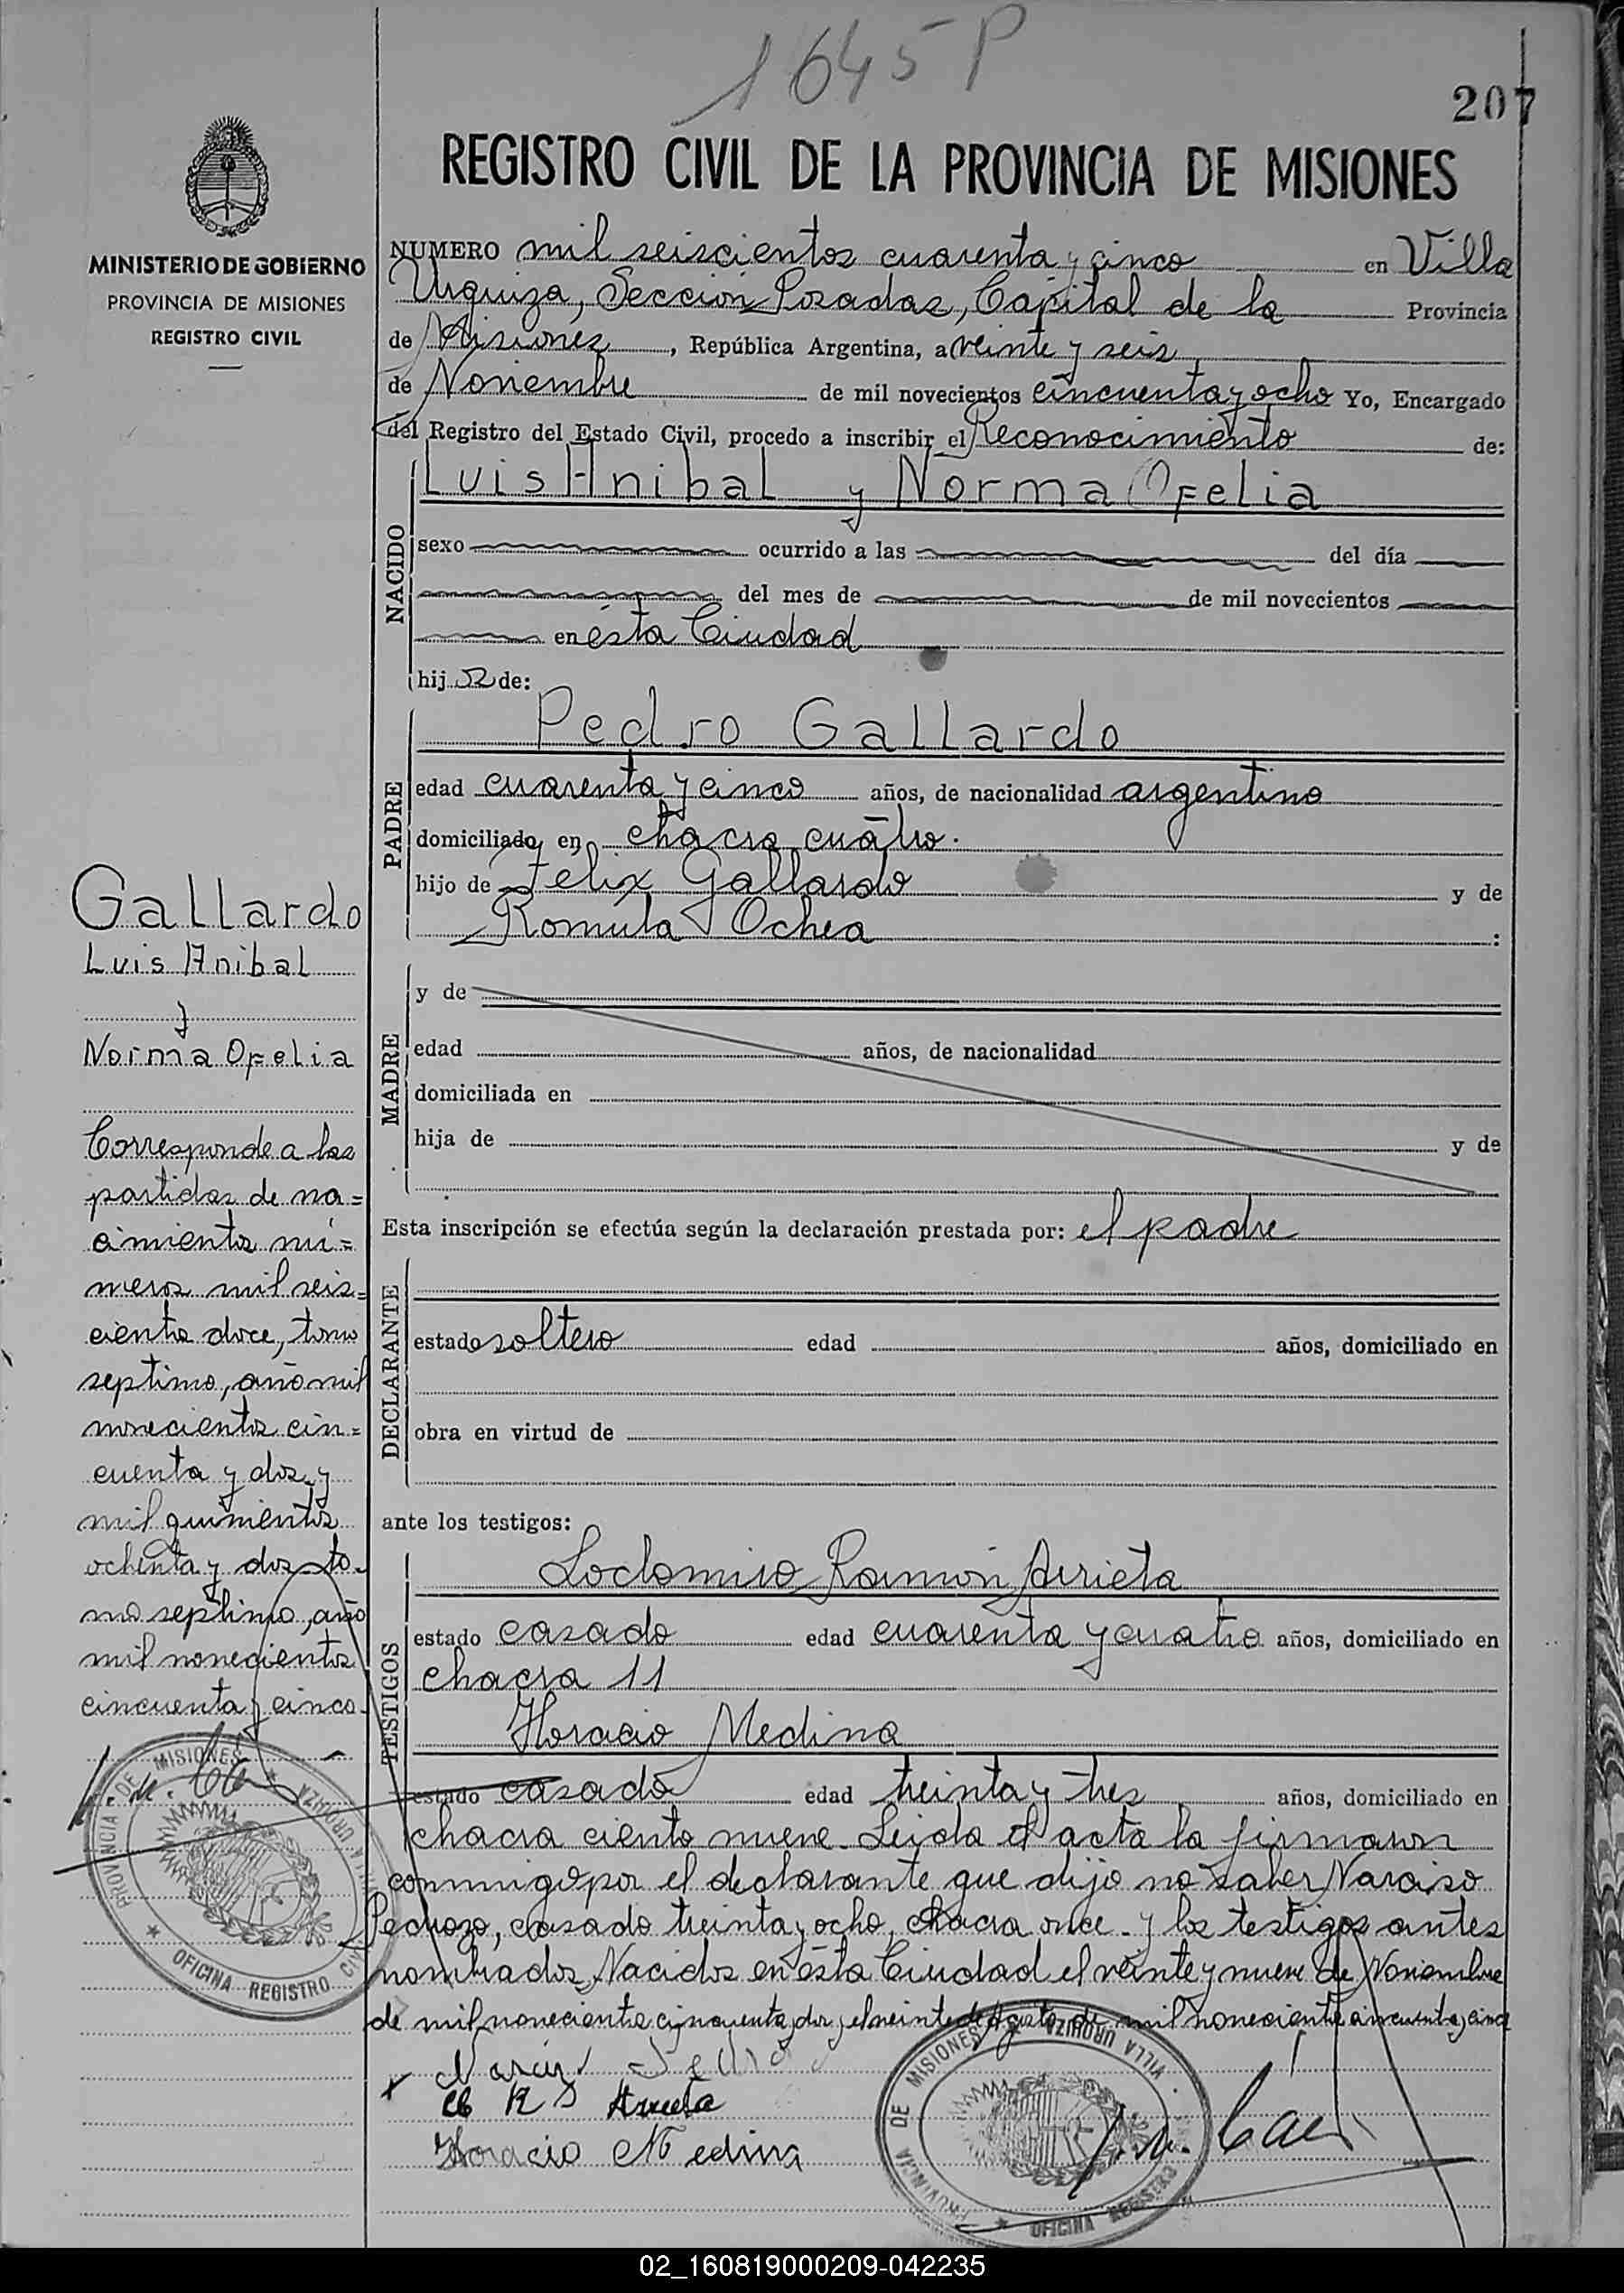 1645 P
207
REGISTRO CIVIL DE LA PROVINCIA DE MISIONES
MINISTERIO DE GOBIERNO
PROVINCIA DE MISIONES
REGISTRO CIVIL
NUMERO mil seiscientos cuarenta y cinco en Villa
Urquiza, Sección Posadas, Capital de la Provincia
de Misiones, República Argentina, a veinte y seis
de Noviembre de mil novecientos cincuenta y ocho Yo, Encargado
del Registro del Estado Civil, procedo a inscribir el Reconocimiento de:
NACIDO
Luis Anibal y Norma Ofelia
sexo ocurrido a las del día
del mes de de mil novecientos
en ésta Ciudad
hij os de:
PADRE
Pedro Gallardo
edad cuarenta y cinco años, de nacionalidad argentino
domiciliado en chacra cuatro.
hijo de Felix Gallardo y de
Romula Ochea :
MADRE
y de
edad años, de nacionalidad
domiciliada en
hija de y de
Esta inscripción se efectúa según la declaración prestada por: el padre
DECLARANTE
estado soltero edad años, domiciliado en
obra en virtud de
ante los testigos:
TESTIGOS
Lodomiro Ramón Arrieta
estado casado edad cuarenta y cuatro años, domiciliado en
chacra 11
Horacio Medina
estado casado edad treinta y tres años, domiciliado en
chacra ciento nueve. Leida el acta la firmaron
conmigo por el declarante que dijo no saber Narciso
Pedrozo, casado treinta y ocho, chacra once. y los testigos antes
nombrados, Nacidos en ésta Ciudad el veinte y nueve de Noviembre
de mil novecientos cincuenta y dos y el veinte de Agosto de mil novecientos cincuenta y cinco
Horacio Medina
Gallardo
Luis Anibal
y
Norma Ofelia
Corresponde a las
partidas de na=
cimientos nú=
meros mil seis=
cientos doce, tomo
septimo, año mil
novecientos cin=
cuenta y dos y
mil quinientos
ochenta y dos to-
mo septimo, año
mil novecientos
cincuenta y cinco.
PROVINCIA DE MISIONES ★ VILLA URQUIZA
★ OFICINA REGISTRO CIVIL
PROVINCIA DE MISIONES ★ VILLA URQUIZA
★ OFICINA REGISTRO
02_160819000209-042235